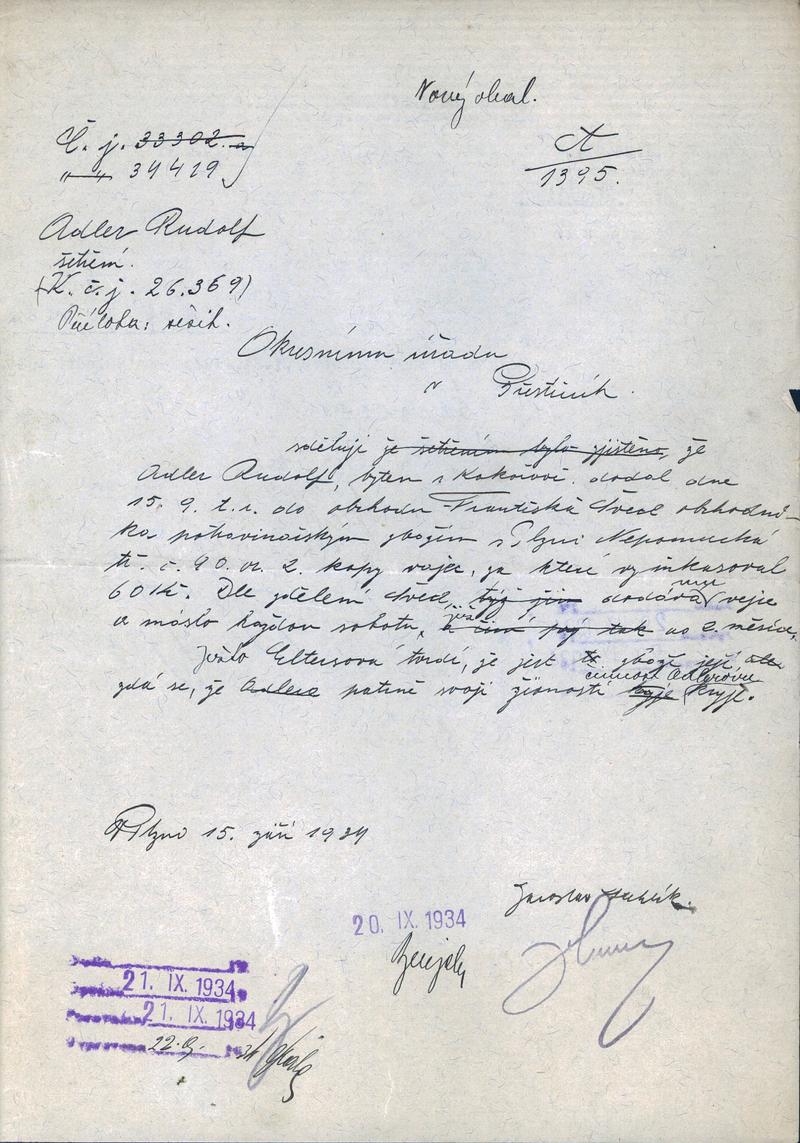 Nový obal.
Č. j. 33302. a
" " 34419
A
1395.
Adler Rudolf
šetření.
(K. č. j. 26.369)
Příloha: sešit.
Okresnímu úřadu
v Přešticích.
sděluji že šetřením bylo zjištěno, že
Adler Rudolf, bytem v Kokořově dodal dne
15. 9. t. r. do obchodu Františka Švec obchodní-
ka potravinářským zbožím v Plzni Nepomucká
tř. č. 90. 2. kopy vajec, za které vyinkasoval
60 Kč. Dle sdělení Švec, týž jim dodává mu vejce
a máslo každou sobotu, již as 2 měsíce.
Eltersová tvrdí, že jest to zboží její, ale
činnost Adlerovu
zdá se, že Adlera patrně svojí živností kryje.
Plzno 15. září 1934
Jaroslav
20. IX. 1934
21. IX. 1934
21. IX. 1934
22. 9. 34